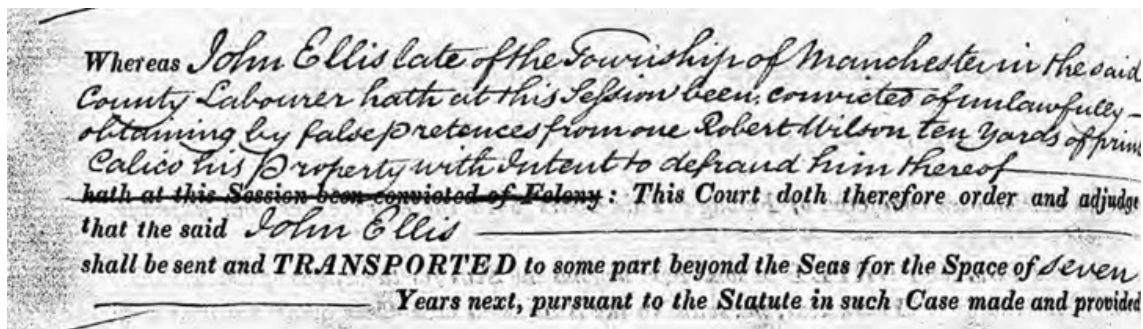 Whereas John Ellis late of the Township of Manchester in the said
County Labourer hath at this Session been convicted of unlawfully
obtaining by false pretences from one Robert Wilson ten Yards of prin
Calico his Property with Intent to defraud him thereof
hath at this Session been convicted of Felony : This Court doth therefore order and adjudge
that the said John Ellis
shall be sent and TRANSPORTED to some part beyond the Seas for the Space of seven
Years next, pursuant to the Statute in such Case made and provided